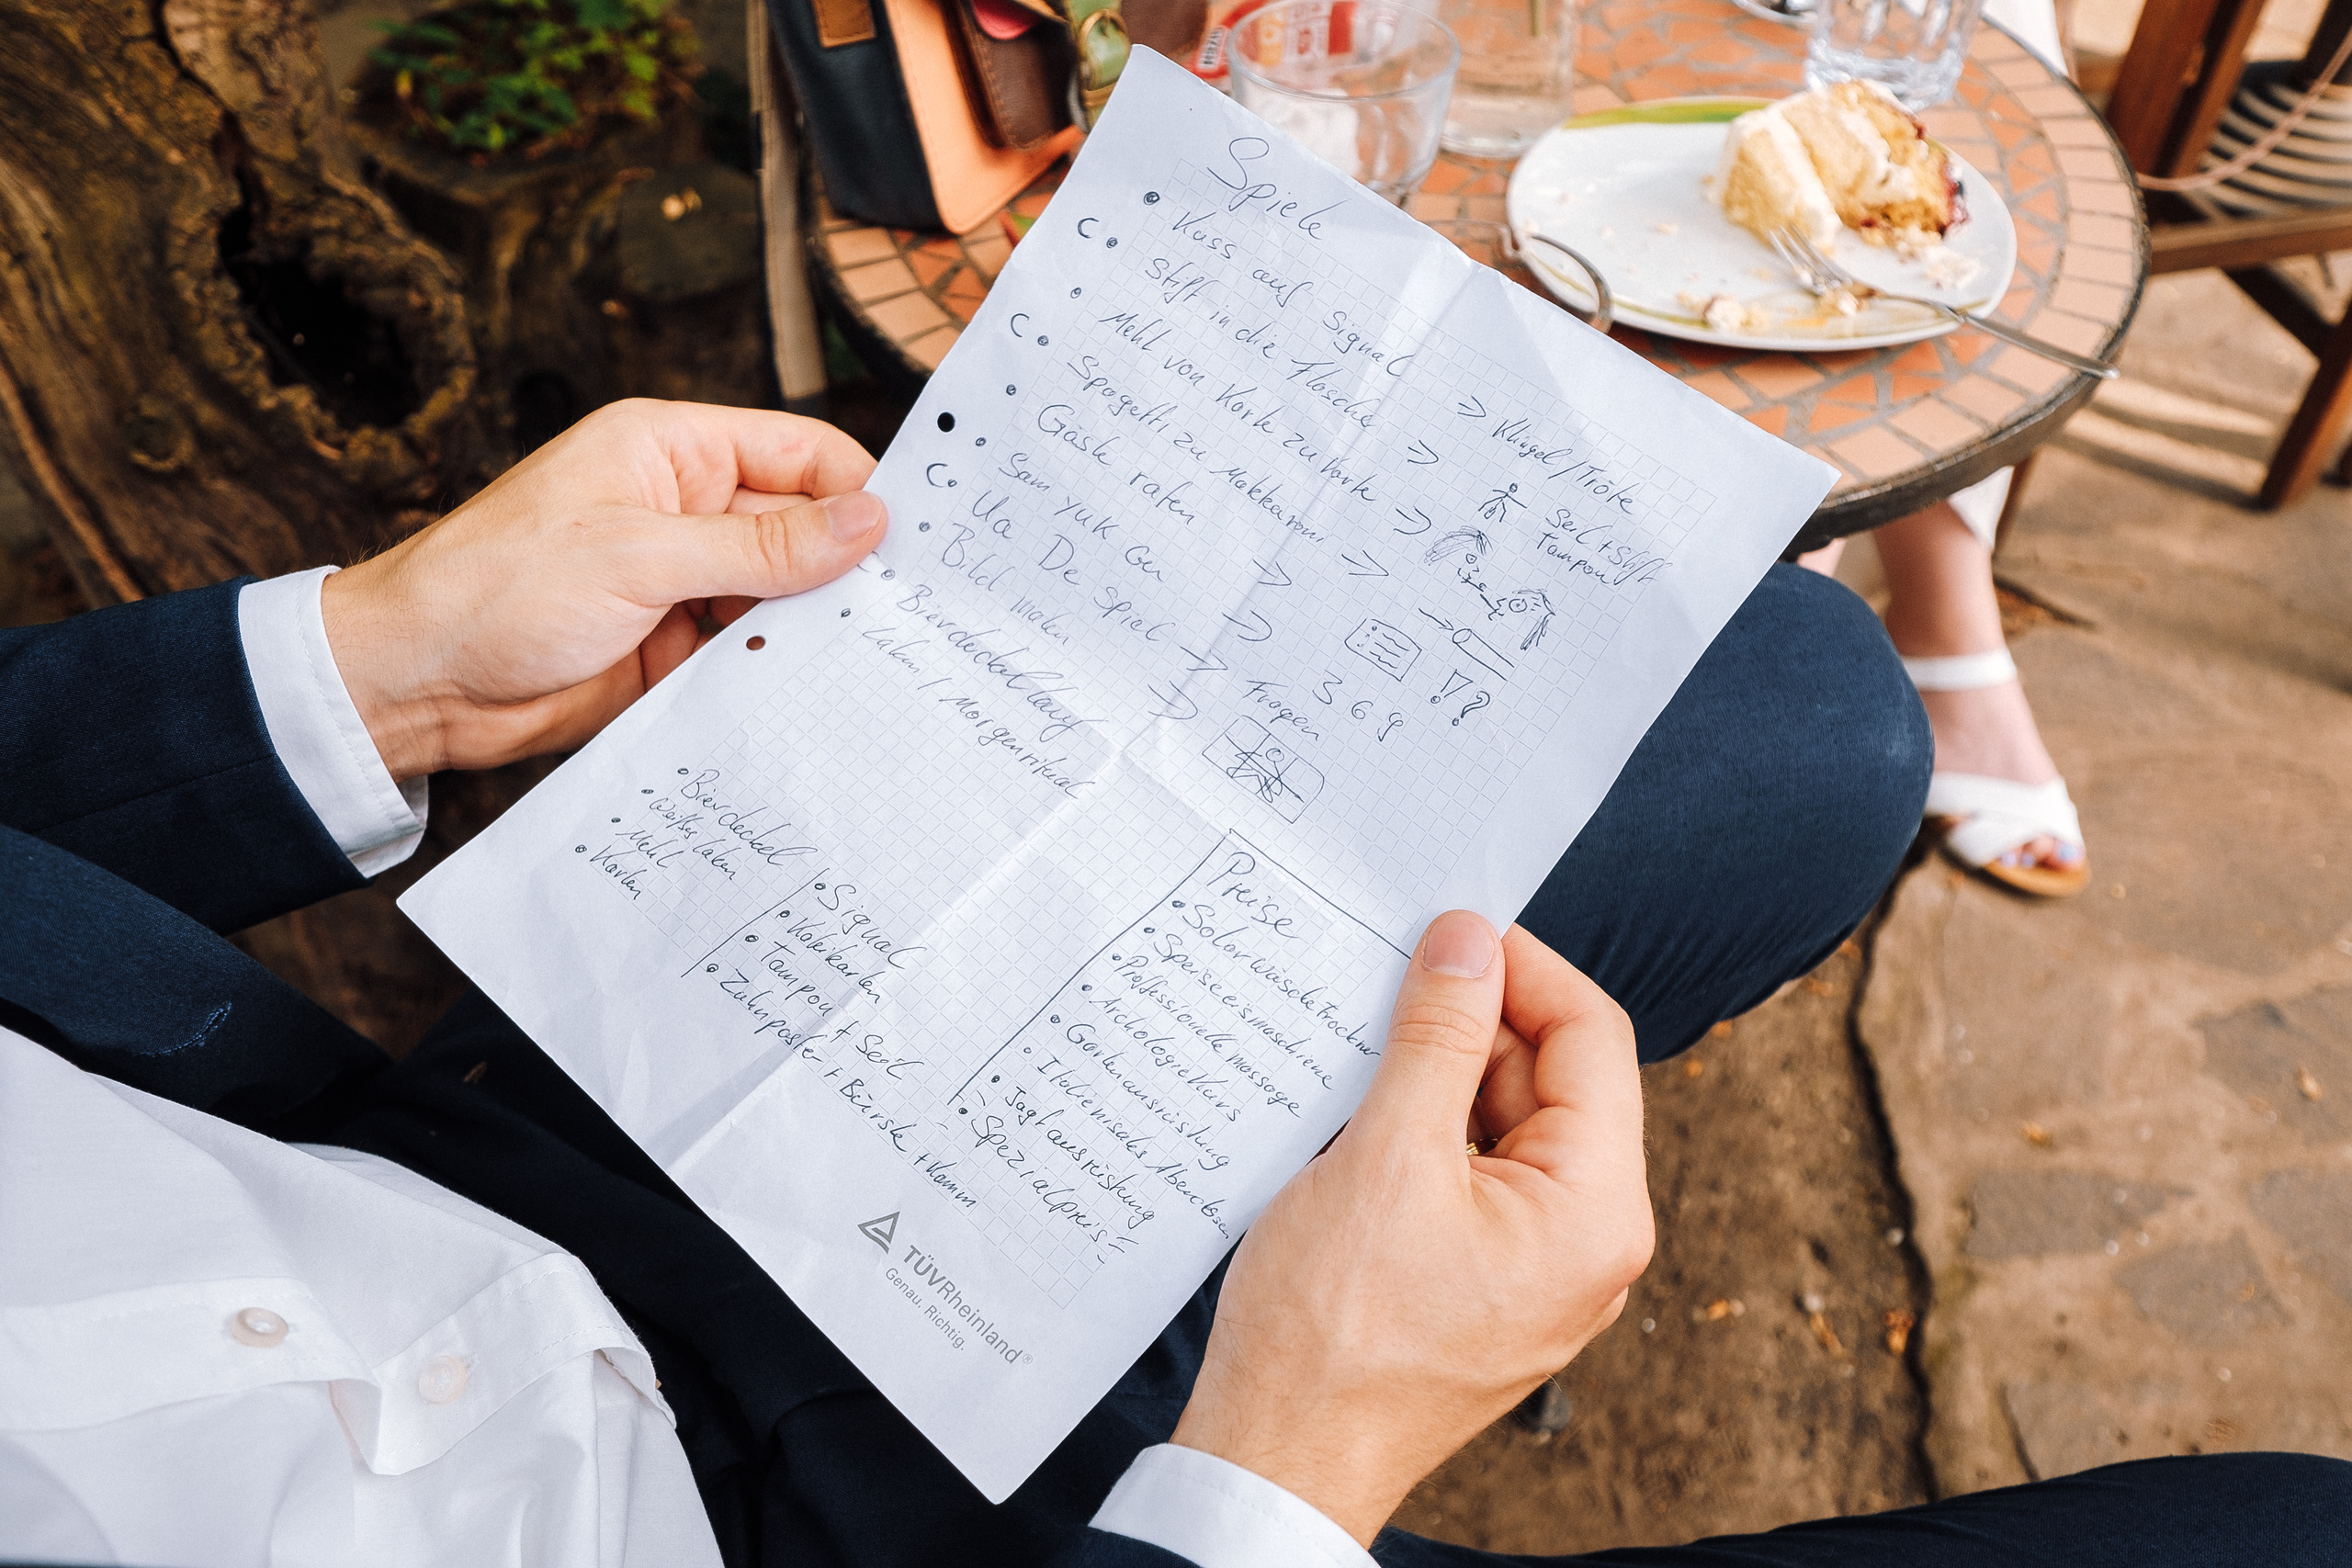 Spiele
• Kuss auf Signal => Klingel/Tröte
• Stift in die Flasche => Seil + Stift
Tampon
• Mehl von Karte zu Karte =>
• Spagetti zu Makkaroni =>
• Gäste raten => !?
• Sam Yuk Gu => 3 6 9
• Ua De Spiel => Fragen
• Bild malen =>
• Bierdeckellauf
• Laken / Morgenritual
• Bierdeckel
• Weißes Laken
• Mehl
• Karten
• Signal
• Tampon + Seil
• Zahnpaste + Bürste + Kamm
Preise
• Solar Wäschetrockner
• Speiseeismaschiene
• Proffessionelle massage
• Archologie Kurs
• Gartenausrüstung
• Italienisches Abendessen
• Jagtausrüstung
• Spezialpreis
TÜVRheinland®
Genau. Richtig.